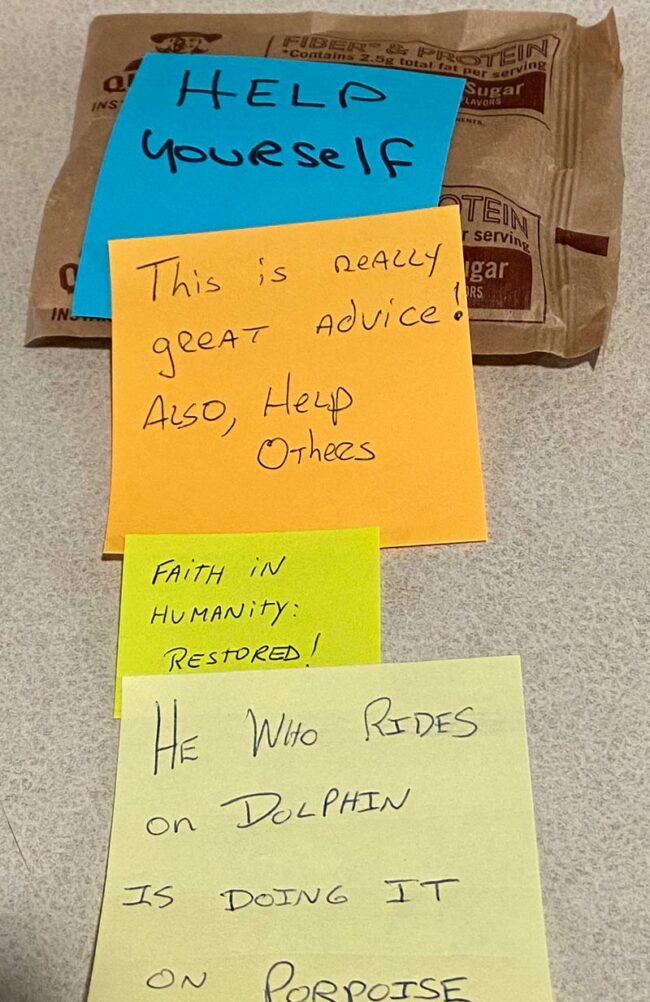 FIBER* & PROTEIN
*Contains 2.5g total fat per serving
Sugar
HELP
YOURSelF
r serving
This is ReALLY
gReAT AdvicE!
ALSO, HeLp
OTheRS
FAiTH iN
HUMANiTY:
RESTORED!
HE WHO RIDES
on DOLPHIN
IS DOING IT
ON PORPOISE